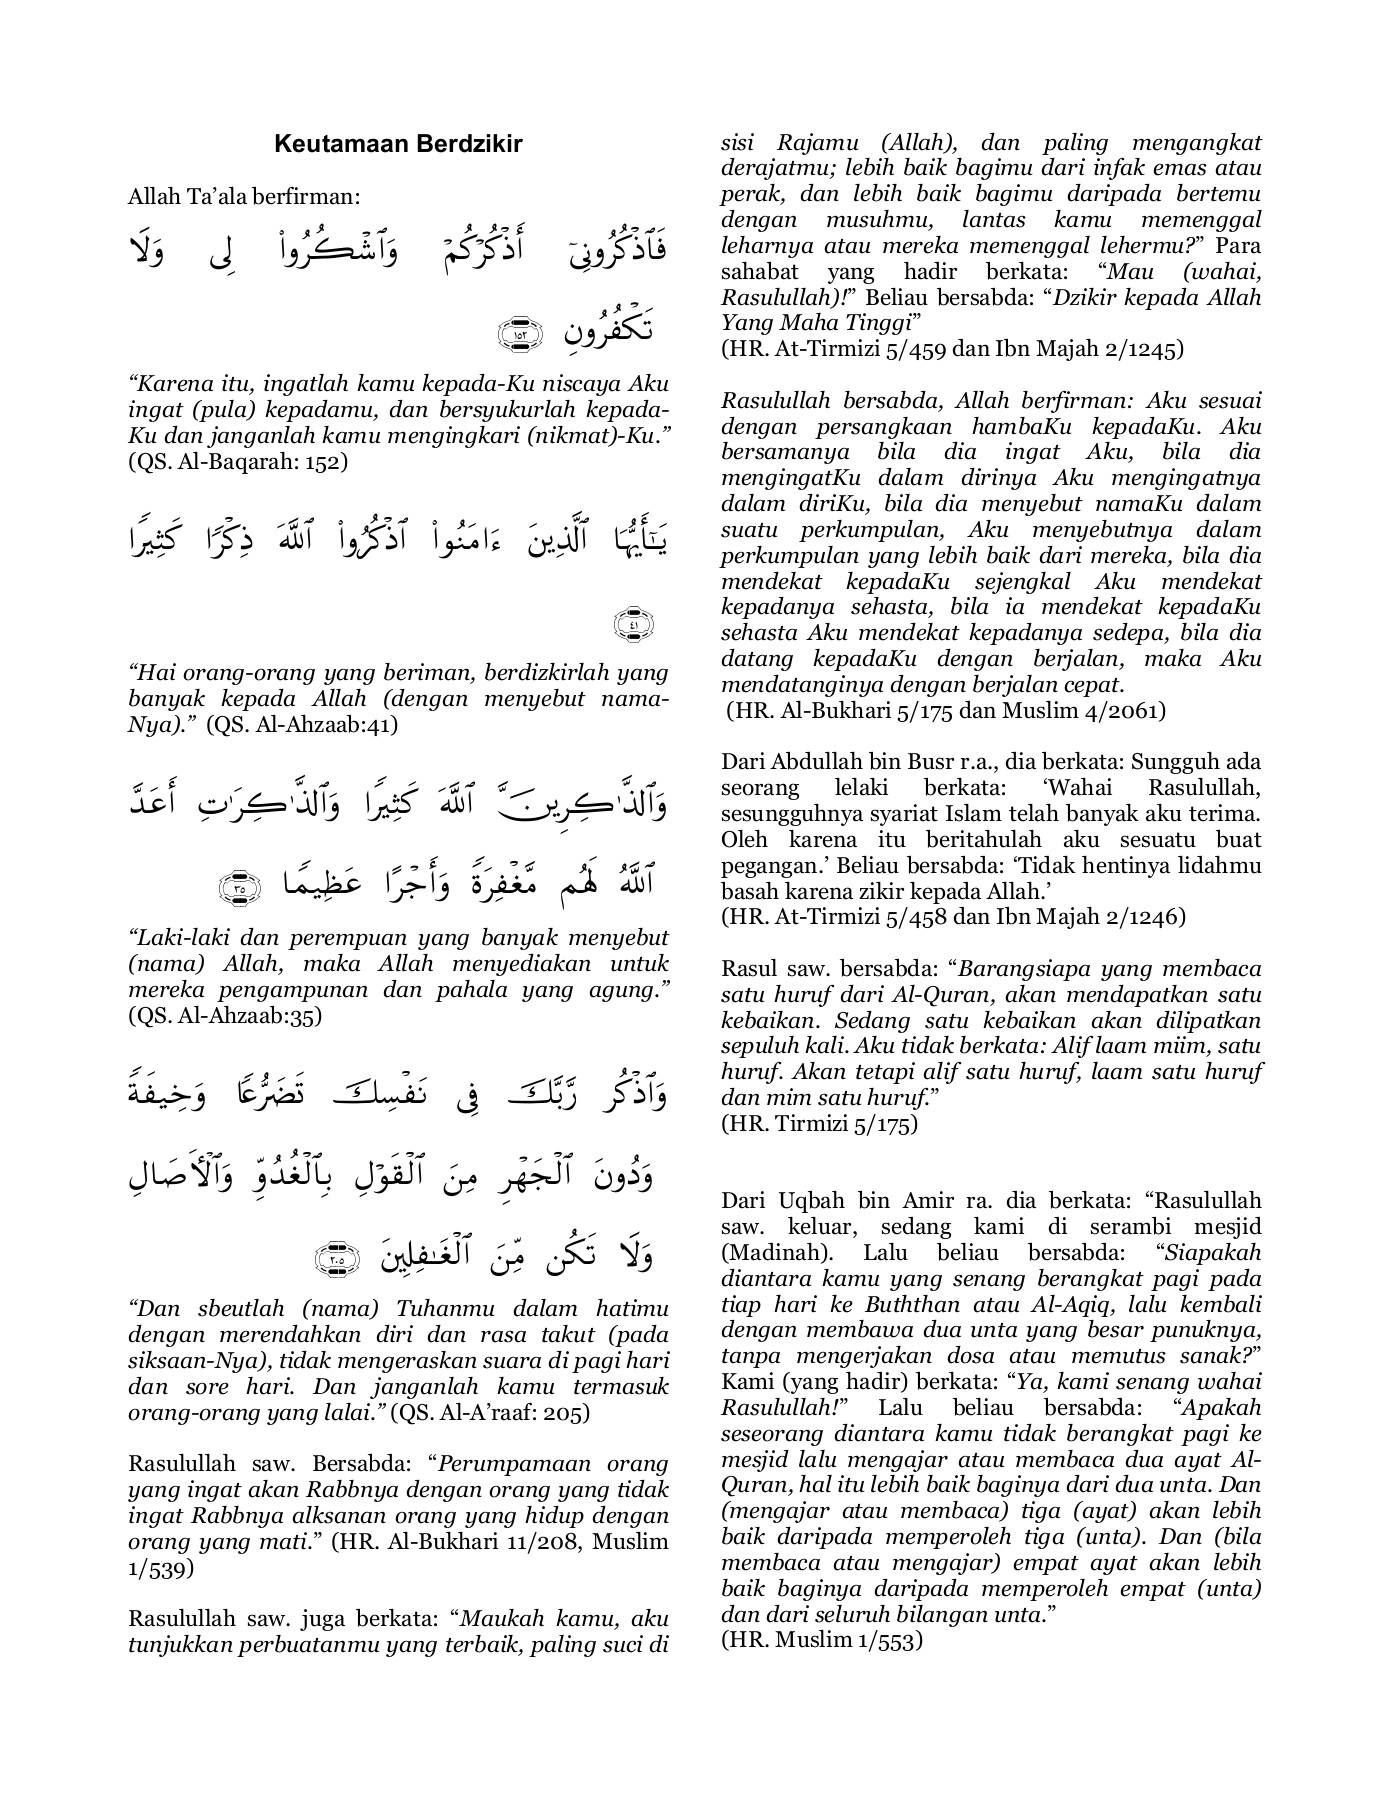 Keutamaan Berdzikir
Allah Ta’ala berfirman:
فَٱذْكُرُونِىٓ أَذْكُرْكُمْ وَٱشْكُرُوا۟ لِى وَلَا
تَكْفُرُونِ ١٥٢
“Karena itu, ingatlah kamu kepada-Ku niscaya Aku
ingat (pula) kepadamu, dan bersyukurlah kepada-
Ku dan janganlah kamu mengingkari (nikmat)-Ku.”
(QS. Al-Baqarah: 152)
يَـٰٓأَيُّهَا ٱلَّذِينَ ءَامَنُوا۟ ٱذْكُرُوا۟ ٱللَّهَ ذِكْرًا كَثِيرًا
٤١
“Hai orang-orang yang beriman, berdizkirlah yang
banyak kepada Allah (dengan menyebut nama-
Nya).” (QS. Al-Ahzaab:41)
وَٱلذَّٰكِرِينَ ٱللَّهَ كَثِيرًا وَٱلذَّٰكِرَٰتِ أَعَدَّ
ٱللَّهُ لَهُم مَّغْفِرَةً وَأَجْرًا عَظِيمًا ٣٥
“Laki-laki dan perempuan yang banyak menyebut
(nama) Allah, maka Allah menyediakan untuk
mereka pengampunan dan pahala yang agung.”
(QS. Al-Ahzaab:35)
وَٱذْكُر رَّبَّكَ فِى نَفْسِكَ تَضَرُّعًا وَخِيفَةً
وَدُونَ ٱلْجَهْرِ مِنَ ٱلْقَوْلِ بِٱلْغُدُوِّ وَٱلْءَاصَالِ
وَلَا تَكُن مِّنَ ٱلْغَـٰفِلِينَ ٢٠٥
“Dan sbeutlah (nama) Tuhanmu dalam hatimu
dengan merendahkan diri dan rasa takut (pada
siksaan-Nya), tidak mengeraskan suara di pagi hari
dan sore hari. Dan janganlah kamu termasuk
orang-orang yang lalai.” (QS. Al-A’raaf: 205)
Rasulullah saw. Bersabda: “Perumpamaan orang
yang ingat akan Rabbnya dengan orang yang tidak
ingat Rabbnya alksanan orang yang hidup dengan
orang yang mati.” (HR. Al-Bukhari 11/208, Muslim
1/539)
Rasulullah saw. juga berkata: “Maukah kamu, aku
tunjukkan perbuatanmu yang terbaik, paling suci di
sisi Rajamu (Allah), dan paling mengangkat
derajatmu; lebih baik bagimu dari infak emas atau
perak, dan lebih baik bagimu daripada bertemu
dengan musuhmu, lantas kamu memenggal
leharnya atau mereka memenggal lehermu?” Para
sahabat yang hadir berkata: “Mau (wahai,
Rasulullah)!” Beliau bersabda: “Dzikir kepada Allah
Yang Maha Tinggi”
(HR. At-Tirmizi 5/459 dan Ibn Majah 2/1245)
Rasulullah bersabda, Allah berfirman: Aku sesuai
dengan persangkaan hambaKu kepadaKu. Aku
bersamanya bila dia ingat Aku, bila dia
mengingatKu dalam dirinya Aku mengingatnya
dalam diriKu, bila dia menyebut namaKu dalam
suatu perkumpulan, Aku menyebutnya dalam
perkumpulan yang lebih baik dari mereka, bila dia
mendekat kepadaKu sejengkal Aku mendekat
kepadanya sehasta, bila ia mendekat kepadaKu
sehasta Aku mendekat kepadanya sedepa, bila dia
datang kepadaKu dengan berjalan, maka Aku
mendatanginya dengan berjalan cepat.
(HR. Al-Bukhari 5/175 dan Muslim 4/2061)
Dari Abdullah bin Busr r.a., dia berkata: Sungguh ada
seorang lelaki berkata: ‘Wahai Rasulullah,
sesungguhnya syariat Islam telah banyak aku terima.
Oleh karena itu beritahulah aku sesuatu buat
pegangan.’ Beliau bersabda: ‘Tidak hentinya lidahmu
basah karena zikir kepada Allah.’
(HR. At-Tirmizi 5/458 dan Ibn Majah 2/1246)
Rasul saw. bersabda: “Barangsiapa yang membaca
satu huruf dari Al-Quran, akan mendapatkan satu
kebaikan. Sedang satu kebaikan akan dilipatkan
sepuluh kali. Aku tidak berkata: Alif laam miim, satu
huruf. Akan tetapi alif satu huruf, laam satu huruf
dan mim satu huruf.”
(HR. Tirmizi 5/175)
Dari Uqbah bin Amir ra. dia berkata: “Rasulullah
saw. keluar, sedang kami di serambi mesjid
(Madinah). Lalu beliau bersabda: “Siapakah
diantara kamu yang senang berangkat pagi pada
tiap hari ke Buththan atau Al-Aqiq, lalu kembali
dengan membawa dua unta yang besar punuknya,
tanpa mengerjakan dosa atau memutus sanak?”
Kami (yang hadir) berkata: “Ya, kami senang wahai
Rasulullah!” Lalu beliau bersabda: “Apakah
seseorang diantara kamu tidak berangkat pagi ke
mesjid lalu mengajar atau membaca dua ayat Al-
Quran, hal itu lebih baik baginya dari dua unta. Dan
(mengajar atau membaca) tiga (ayat) akan lebih
baik daripada memperoleh tiga (unta). Dan (bila
membaca atau mengajar) empat ayat akan lebih
baik baginya daripada memperoleh empat (unta)
dan dari seluruh bilangan unta.”
(HR. Muslim 1/553)